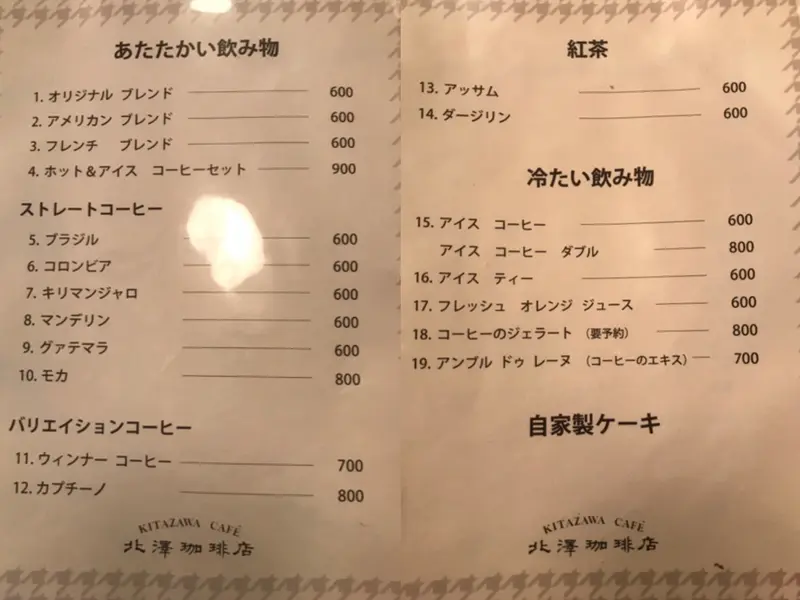 あたたかい飲み物
1. オリジナル ブレンド 600
2. アメリカン ブレンド 600
3. フレンチ ブレンド 600
4. ホット＆アイス コーヒーセット 900
ストレートコーヒー
5. ブラジル 600
6. コロンビア 600
7. キリマンジャロ 600
8. マンデリン 600
9. グァテマラ 600
10. モカ 800
バリエイションコーヒー
11. ウィンナー コーヒー 700
12. カプチーノ 800
KITAZAWA CAFÉ
北澤珈琲店
紅茶
13. アッサム 600
14. ダージリン 600
冷たい飲み物
15. アイス コーヒー 600
アイス コーヒー ダブル 800
16. アイス ティー 600
17. フレッシュ オレンジ ジュース 600
18. コーヒーのジェラート （要予約） 800
19. アンブル ドゥ レーヌ （コーヒーのエキス） 700
自家製ケーキ
KITAZAWA CAFÉ
北澤珈琲店